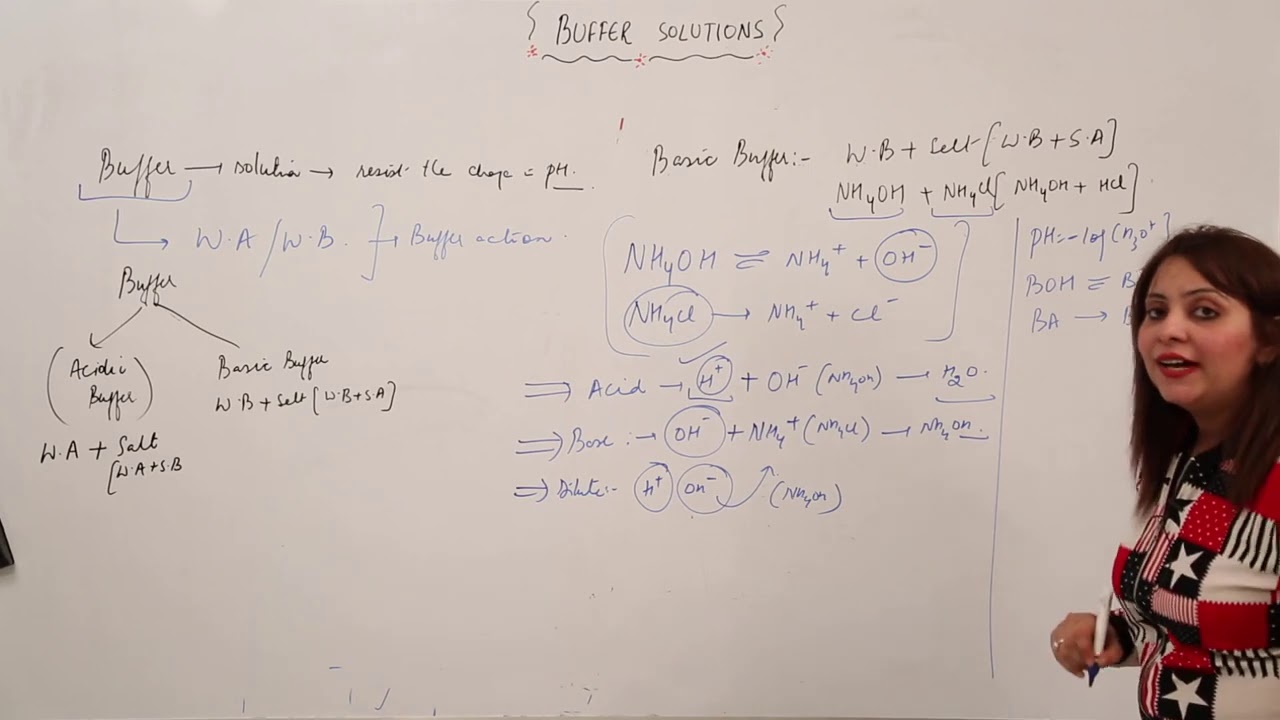 BUFFER SOLUTIONS
Buffer → solution → resist the change = pH.
W.A / W.B. → Buffer action.
Buffer
Acidic Buffer
W.A + Salt
[W.A + S.B
Basic Buffer
W.B + Salt [W.B + S.A]
Basic Buffer:- W.B + Salt [W.B + S.A]
NH4OH + NH4Cl [NH4OH + HCl]
NH4OH ⇌ NH4+ + OH-
NH4Cl → NH4+ + Cl-
⇒ Acid → H+ + OH- (NH4OH) → H2O.
⇒ Base :→ OH- + NH4+ (NH4Cl) → NH4OH.
⇒ Dilute:- H+ OH- (NH4OH)
pH = -log[H3O+]
BOH ⇌ B
BA →